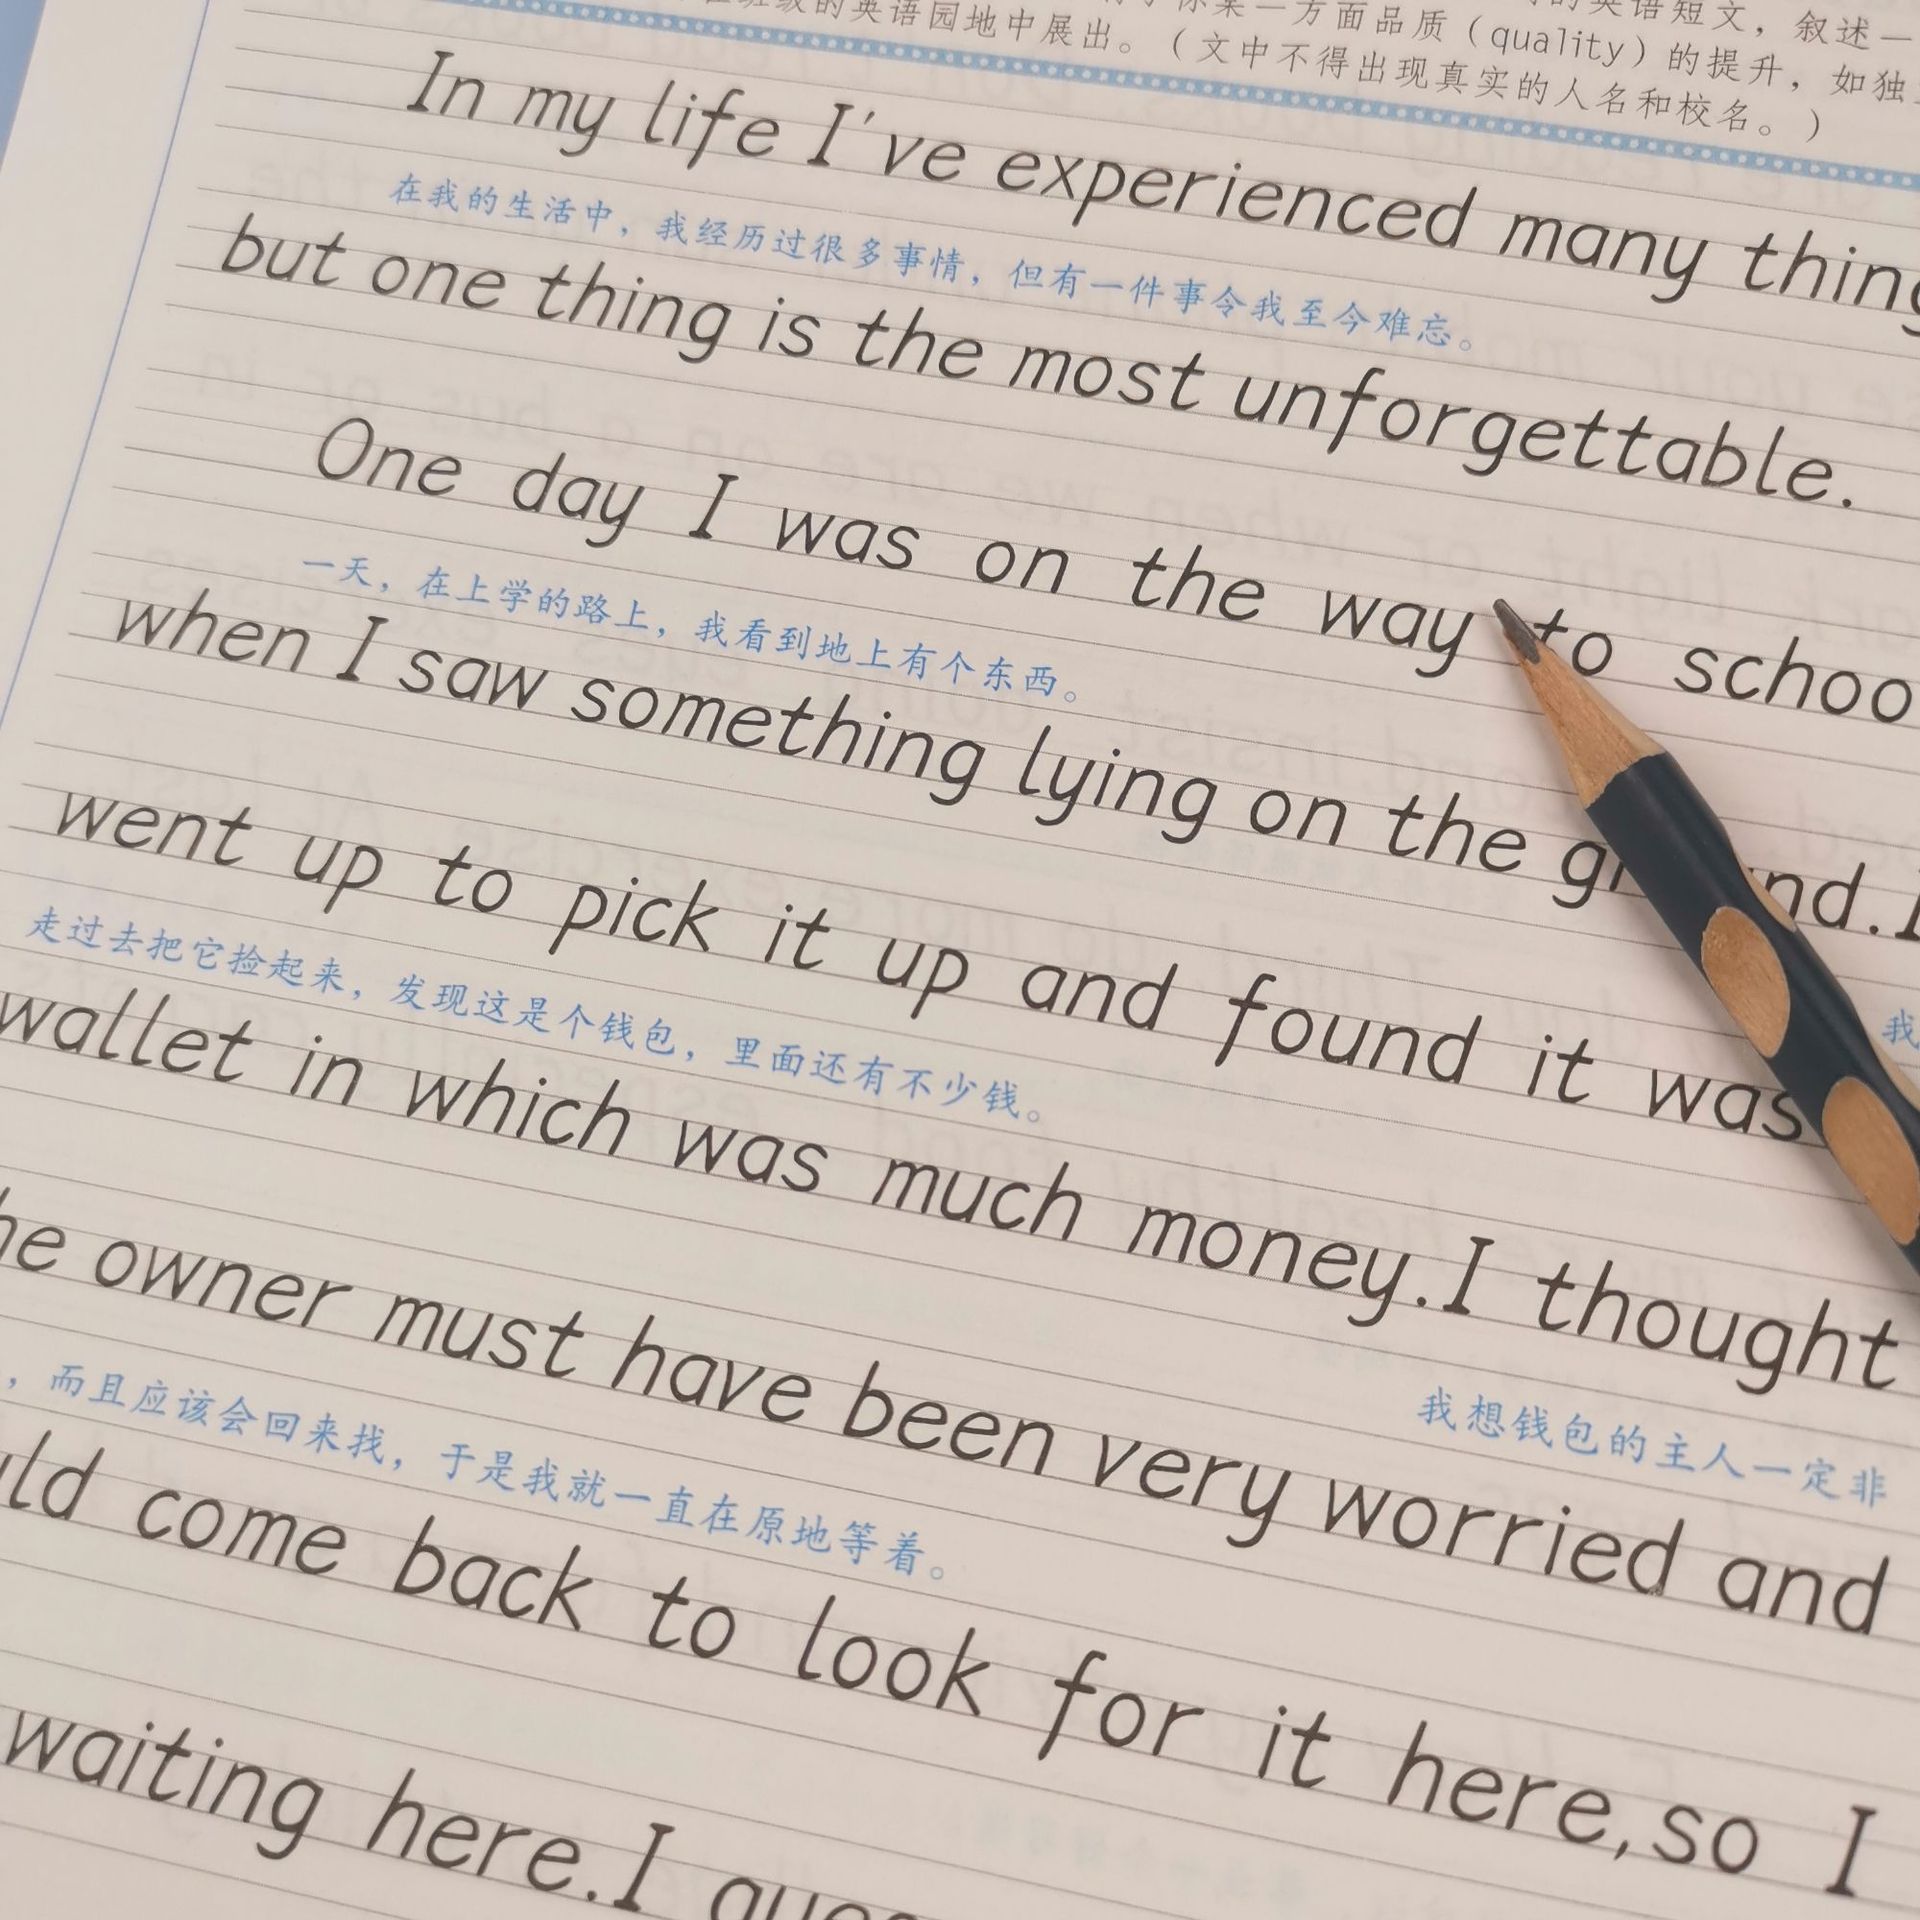 的英语短文，叙述一
班级的英语园地中展出。（文中不得出现真实的人名和校名。）
某一方面品质（quality）的提升，如独
In my life I've experienced many
在我的生活中，我经历过很多事情，但有一件事令我至今难忘。
but one thing is the most unforgettable.
One day I was on the way to
一天，在上学的路上，我看到地上有个东西。
when I saw something lying on the
went up to pick it up and found it was
我
走过去把它捡起来，发现这是个钱包，里面还有不少钱。
wallet in which was much money.I thought
我想钱包的主人一定非
owner must have been very worried and
，而且应该会回来找，于是我就一直在原地等着。
come back to look for it here,so I
waiting here.I